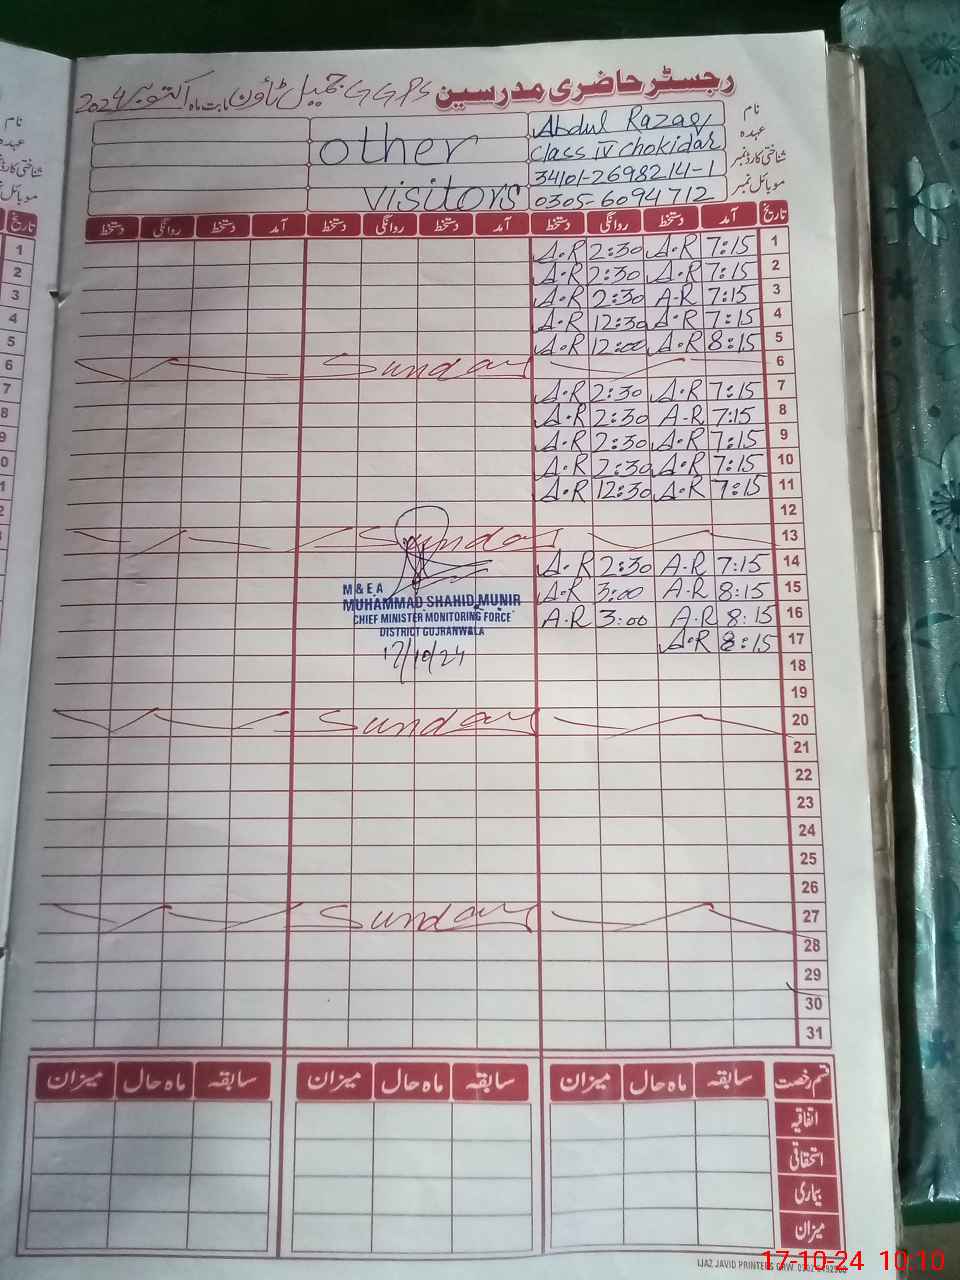 رجسٹر حاضری مدرسین GGPS جمیل ٹاؤن بابت ماہ اکتوبر 2024
نام Abdul Razaq
عہدہ Class IV Chokidar
شناختی کارڈ نمبر 34101-2698214-1
موبائل نمبر 0305-6094712
other
visitors
تاریخ آمد دستخط روانگی دستخط آمد دستخط روانگی دستخط آمد دستخط روانگی دستخط
1 7:15 A.R 2:30 A.R
2 7:15 A.R 2:30 A.R
3 7:15 A.R 2:30 A.R
4 7:15 A.R 12:30 A.R
5 8:15 A.R 12:00 A.R
6 Sunday
7 7:15 A.R 2:30 A.R
8 7:15 A.R 2:30 A.R
9 7:15 A.R 2:30 A.R
10 7:15 A.R 2:30 A.R
11 7:15 A.R 12:30 A.R
12
13 Sunday
14 7:15 A.R 2:30 A.R
15 8:15 A.R 3:00 A.R
16 8:15 A.R 3:00 A.R
17 8:15 A.R
M & E A
MUHAMMAD SHAHID MUNIR
CHIEF MINISTER MONITORING FORCE
DISTRICT GUJRANWALA
17/10/24
18
19
20 Sunday
21
22
23
24
25
26
27 Sunday
28
29
30
31
قسم رخصت سابقہ ماہ حال میزان سابقہ ماہ حال میزان سابقہ ماہ حال میزان
اتفاقیہ
استحقاقی
بیماری
میزان
IJAZ JAVID PRINTERS GRW.
17-10-24 10:10